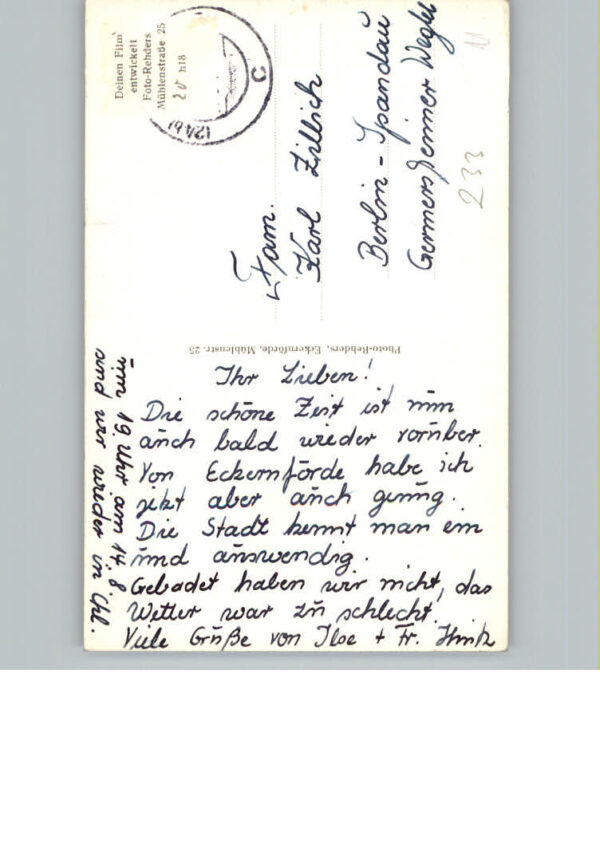 Deinen Film
entwickelt
Foto-Rehders
Mühlenstraße 25
(24b)
C
Fam.
Karl Zillich
Berlin-Spandau
Germersheimer Weg
233
Photo-Rehders, Eckernförde, Mühlenstr. 25
Ihr Lieben!
Die schöne Zeit ist nun
auch bald wieder vorüber.
Von Eckernförde habe ich
jetzt aber auch genug.
Die Stadt kennt man ein
und auswendig.
Gebadet haben wir nicht, das
Wetter war zu schlecht.
Viele Grüße von Ilse + Fr.
um 19 Uhr am 14.8.
sind wir wieder in